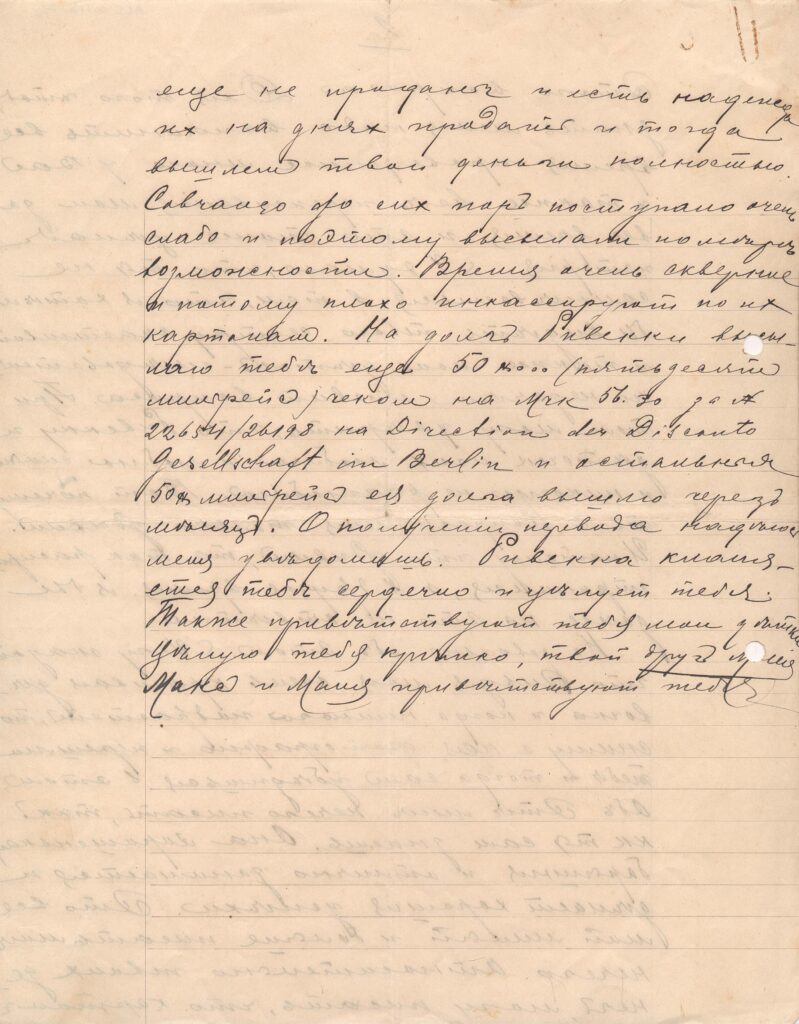 еще не проданы и есть надежда
их на днях продать и тогда
вышлем твои деньги полностью.
до сих поръ поступало очень
слабо и поэтому высылали по мѣрѣ
возможности. Время очень скверное
и потому плохо инкассируют по их
карточкам. На долгъ Ривекки высы-
лаю тебѣ еще 50 (пятьдесят
мильрейс) чеком на Мрк 56.30 за №
22654/26198 на Direction der Disconto
Gesellschaft in Berlin и остальныя
50 мильрейс ея долга вышлю через
мѣсяц. О получении перевода надѣюсь
меня увѣдомишь. Ривекка кланя-
ется тебѣ сердечно и цѣлует тебя.
Также привѣтствуют тебя мои дѣтки
Цѣлую тебя крѣпко, твой друг
Макс и Маня привѣтствуют тебя